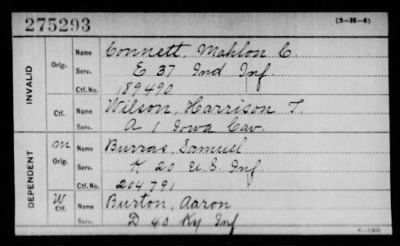 275293 (3-H-4)
INVALID
Orig. Name Connett, Mahlon C.
Serv. E 37 Ind Inf.
Ctf. No. 189490
Ctf. Name Wilson, Harrison T.
Serv. A 1 Iowa Cav.
DEPENDENT
m Orig. Name Burras, Samuel
Serv. K 20 U.S. Inf
Ctf. No. 204791
W Ctf. Name Burton, Aaron
Serv. D 40 Ky Inf